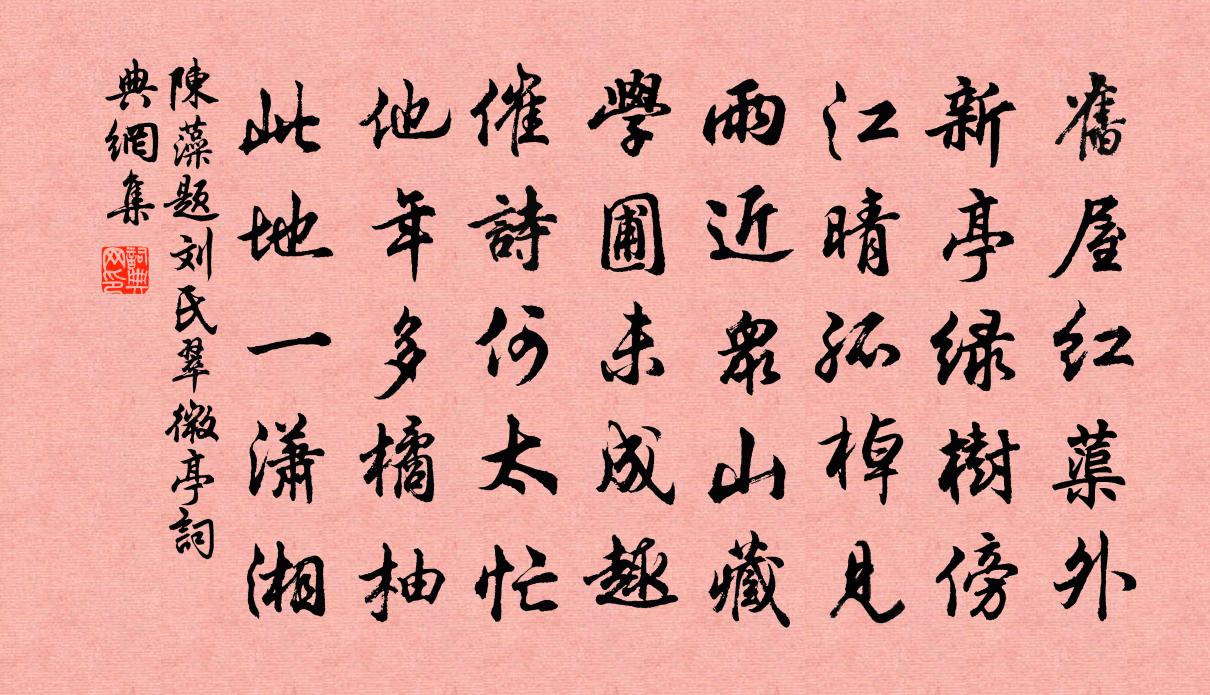 舊屋红蕖外
新亭绿樹傍
江晴孤棹見
雨近衆山藏
學圃未成趣
催詩何太忙
他年多橘柚
此地一潇湘
陳藻题刘氏翠微亭詞
典網集
詞典
网印